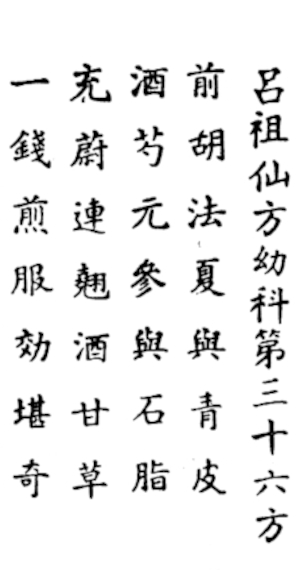 呂祖仙方幼科第三十六方
前胡法夏與青皮
酒芍元參與石脂
充蔚連翹酒甘草
一錢煎服効堪奇